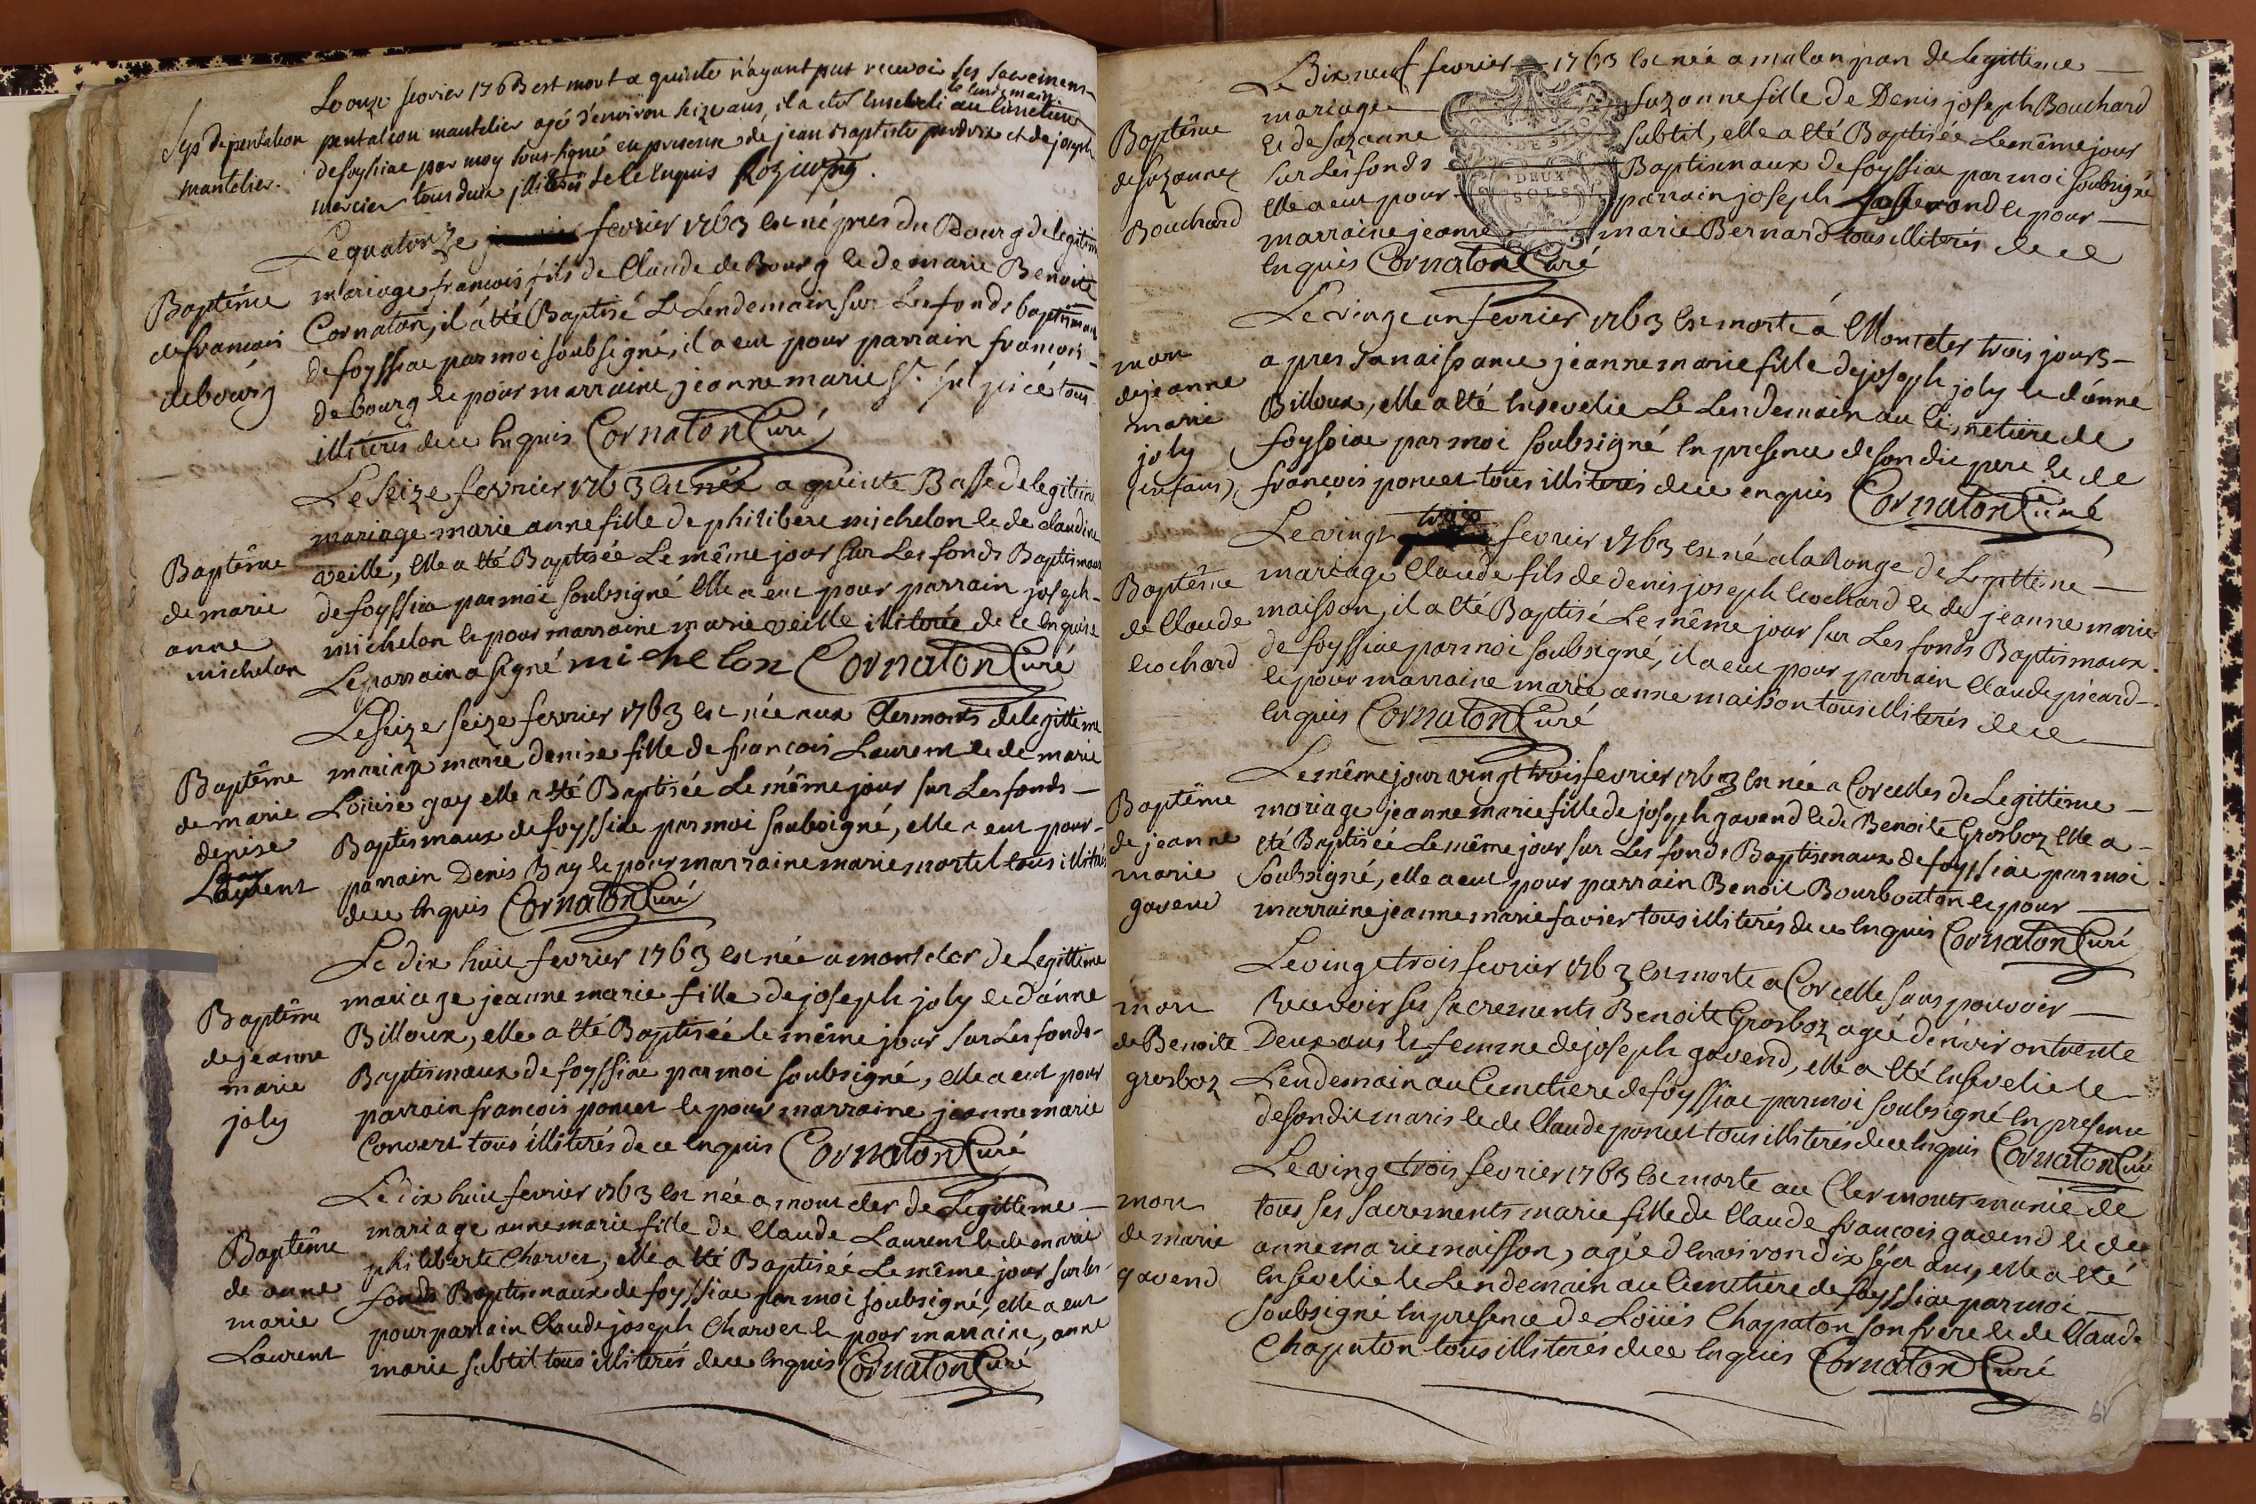 Le onze fevrier 1763 est mort a quinte n'ayant put recevoir ses sacremens
Sep. de pentaleon pentaleon mantelier agé d'environ seize ans, il a eté enseveli le lendemain au cimetiere
mantelier. de foyssiac par moy soussigné en presence de jean Baptiste perdrix et de joseph
mercier tous deux illiterés de ce enquis
Le quatorze fevrier 1763 est né pres du Bourg de legitime
Baptême mariage francois fils de Claude de Bourg et de marie Benoite
de francois Cornaton, il a été Baptisé Le Lendemain sur Les fonds baptismaux
debourg de foyssiac par moi soubsigné, il a eut pour parrain francois
de bourg et pour marraine jeanne marie St. sulpice tous
illiterés de ce enquis Cornaton Curé
Le seize fevrier 1763 est née a quinte Basse de legitime
Baptême mariage marie anne fille de philibert michelon et de claudine
de marie veille, elle a été Baptisée Le même jour sur Les fonds Baptismaux
anne de foyssia par moi soubsigné elle a eut pour parrain joseph
michelon michelon et pour marraine marie veille illiterée de ce enquise
Le parrain a signé michelon Cornaton Curé
Le seize seize fevrier 1763 est née aux Clermonts de legittime
Baptême mariage marie denise fille de francois Laurent et de marie
de marie Loüise gay elle a été Baptisée Le même jour sur Les fonds
denise Baptismaux de foyssiac par moi soubsigné, elle a eut pour
Laurent parrain Denis Bay et pour marraine marie mortel tous illiterés
de ce enquis Cornaton Curé
Le dix huit fevrier 1763 est née a montcler de Legittime
Baptême mariage jeanne marie fille de joseph joly et d'anne
de jeanne Billoux, elle a été Baptisée le même jour sur Les fonds
marie Baptismaux de foyssiac par moi soubsigné, elle a eut pour
joly parrain francois poncet et pour marraine jeanne marie
Convert tous illiterés de ce enquis Cornaton Curé
Le dix huit fevrier 1763 est née a montcler de Legittime
Baptême mariage anne marie fille de Claude Laurent et de marie
de anne philiberte Charvet, elle a été Baptisée Le même jour sur les
marie fonds Baptismaux de foyssiac par moi soubsigné, elle a eut
Laurent pour parrain Claude joseph Charvet et pour marraine, anne
marie subtil tous illiterés de ce enquis Cornaton Curé
Le Dix neuf fevrier 1763 est née a malanjean de Legittime
Baptême mariage Suzanne fille de Denis joseph Bouchard
de suzanne et de suzanne subtil, elle a été Baptisée Le même jour
Bouchard sur Les fonds Baptismaux de foyssiac par moi soubsigné
DE
DEUX
SOLS
elle a eut pour parrain joseph et pour
marraine jeanne marie Bernard tous illiterés de ce
enquis Cornaton Curé
Le vingt un fevrier 1763 est morte á Montcler trois jours
mort apres sa naissance jeanne marie fille de joseph joly et d'anne
de jeanne Billoux, elle a été ensevelie Le Lendemain au cimetiere de
marie foyssiac par moi soubsigné en presence de son dit pere et de
joly francois poncet tous illiterés de ce enquis Cornaton Curé
(enfant)
Le vingt trois fevrier 1763 est né a la Ronge de Legittime
Baptême mariage Claude fils de denis joseph Cochard et de jeanne marie
de Claude maisson, il a été Baptisé Le même jour sur Les fonds Baptismaux
Cochard de foyssiac par moi soubsigné, il a eut pour parrain Claude picard
et pour marraine marie anne maisson tous illiterés de ce
enquis Cornaton Curé
Le même jour vingt trois fevrier 1763 est née a Corcelles de Legittime
Baptême mariage jeanne marie fille de joseph gavend et de Benoite Grosboz elle a
de jeanne été Baptisée Le même jour sur Les fonds Baptismaux de foyssiac par moi
marie soubsigné, elle a eut pour parrain Benoit Bourbouton et pour
gavend marraine jeanne marie favier tous illiterés de ce enquis Cornaton Curé
Le vingt trois fevrier 1763 est morte a Corcelle sans pouvoir
mort recevoir ses sacrements Benoite Grosboz agée d'environ trente
de Benoite Deux ans et femme de joseph gavend, elle a été ensevelie le
grosboz Lendemain au Cimetiere de foyssiac par moi soubsigné en presence
de son dit maris et de Claude poncet tous illiterés de ce enquis Cornaton Curé
Le vingt trois fevrier 1763 est morte au Clermonts munie de
mort tous ses sacrements marie fille de Claude francois gavend et de
de marie anne marie maisson, agée d'environ dix sept ans, elle a été
gavend ensevelie le Lendemain au Cimetiere de foyssiac par moi
soubsigné en presence de Loüis Chapaton son frere et de Claude
Chapaton tous illiterés de ce enquis Cornaton Curé